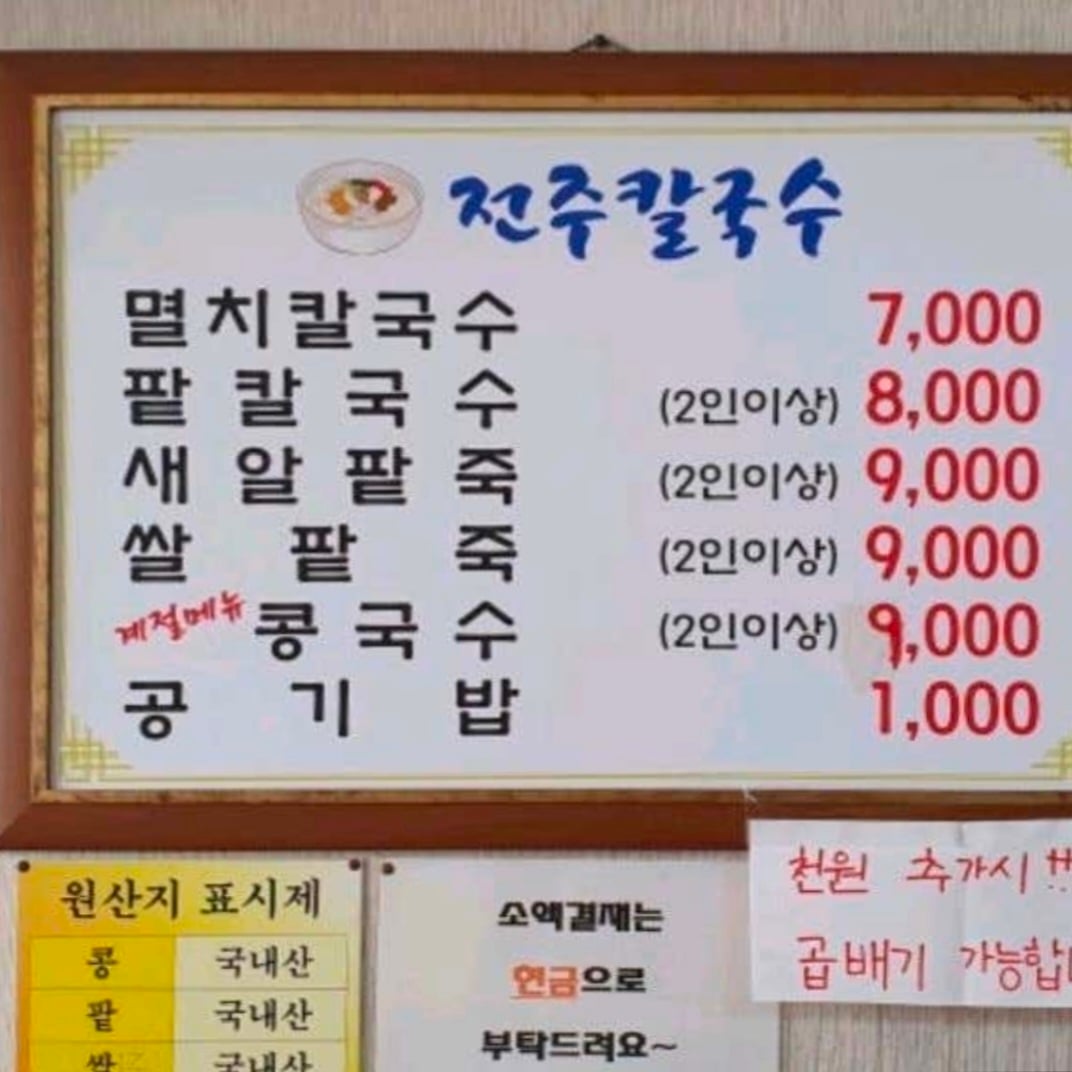 전주칼국수
멸치칼국수 7,000
팥칼국수 (2인이상) 8,000
새알팥죽 (2인이상) 9,000
쌀팥죽 (2인이상) 9,000
계절메뉴 콩국수 (2인이상) 9,000
공기밥 1,000
원산지 표시제
콩 국내산
팥 국내산
쌀 국내산
소액결재는
현금으로
부탁드려요~
천원 추가시 !!
곱배기 가능합